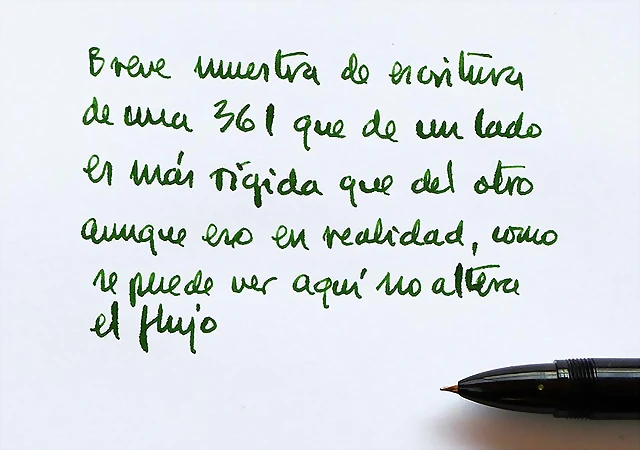 Breve muestra de escritura
de una 361 que de un lado
es más rígida que del otro
aunque eso en realidad, como
se puede ver aquí no altera
el flujo